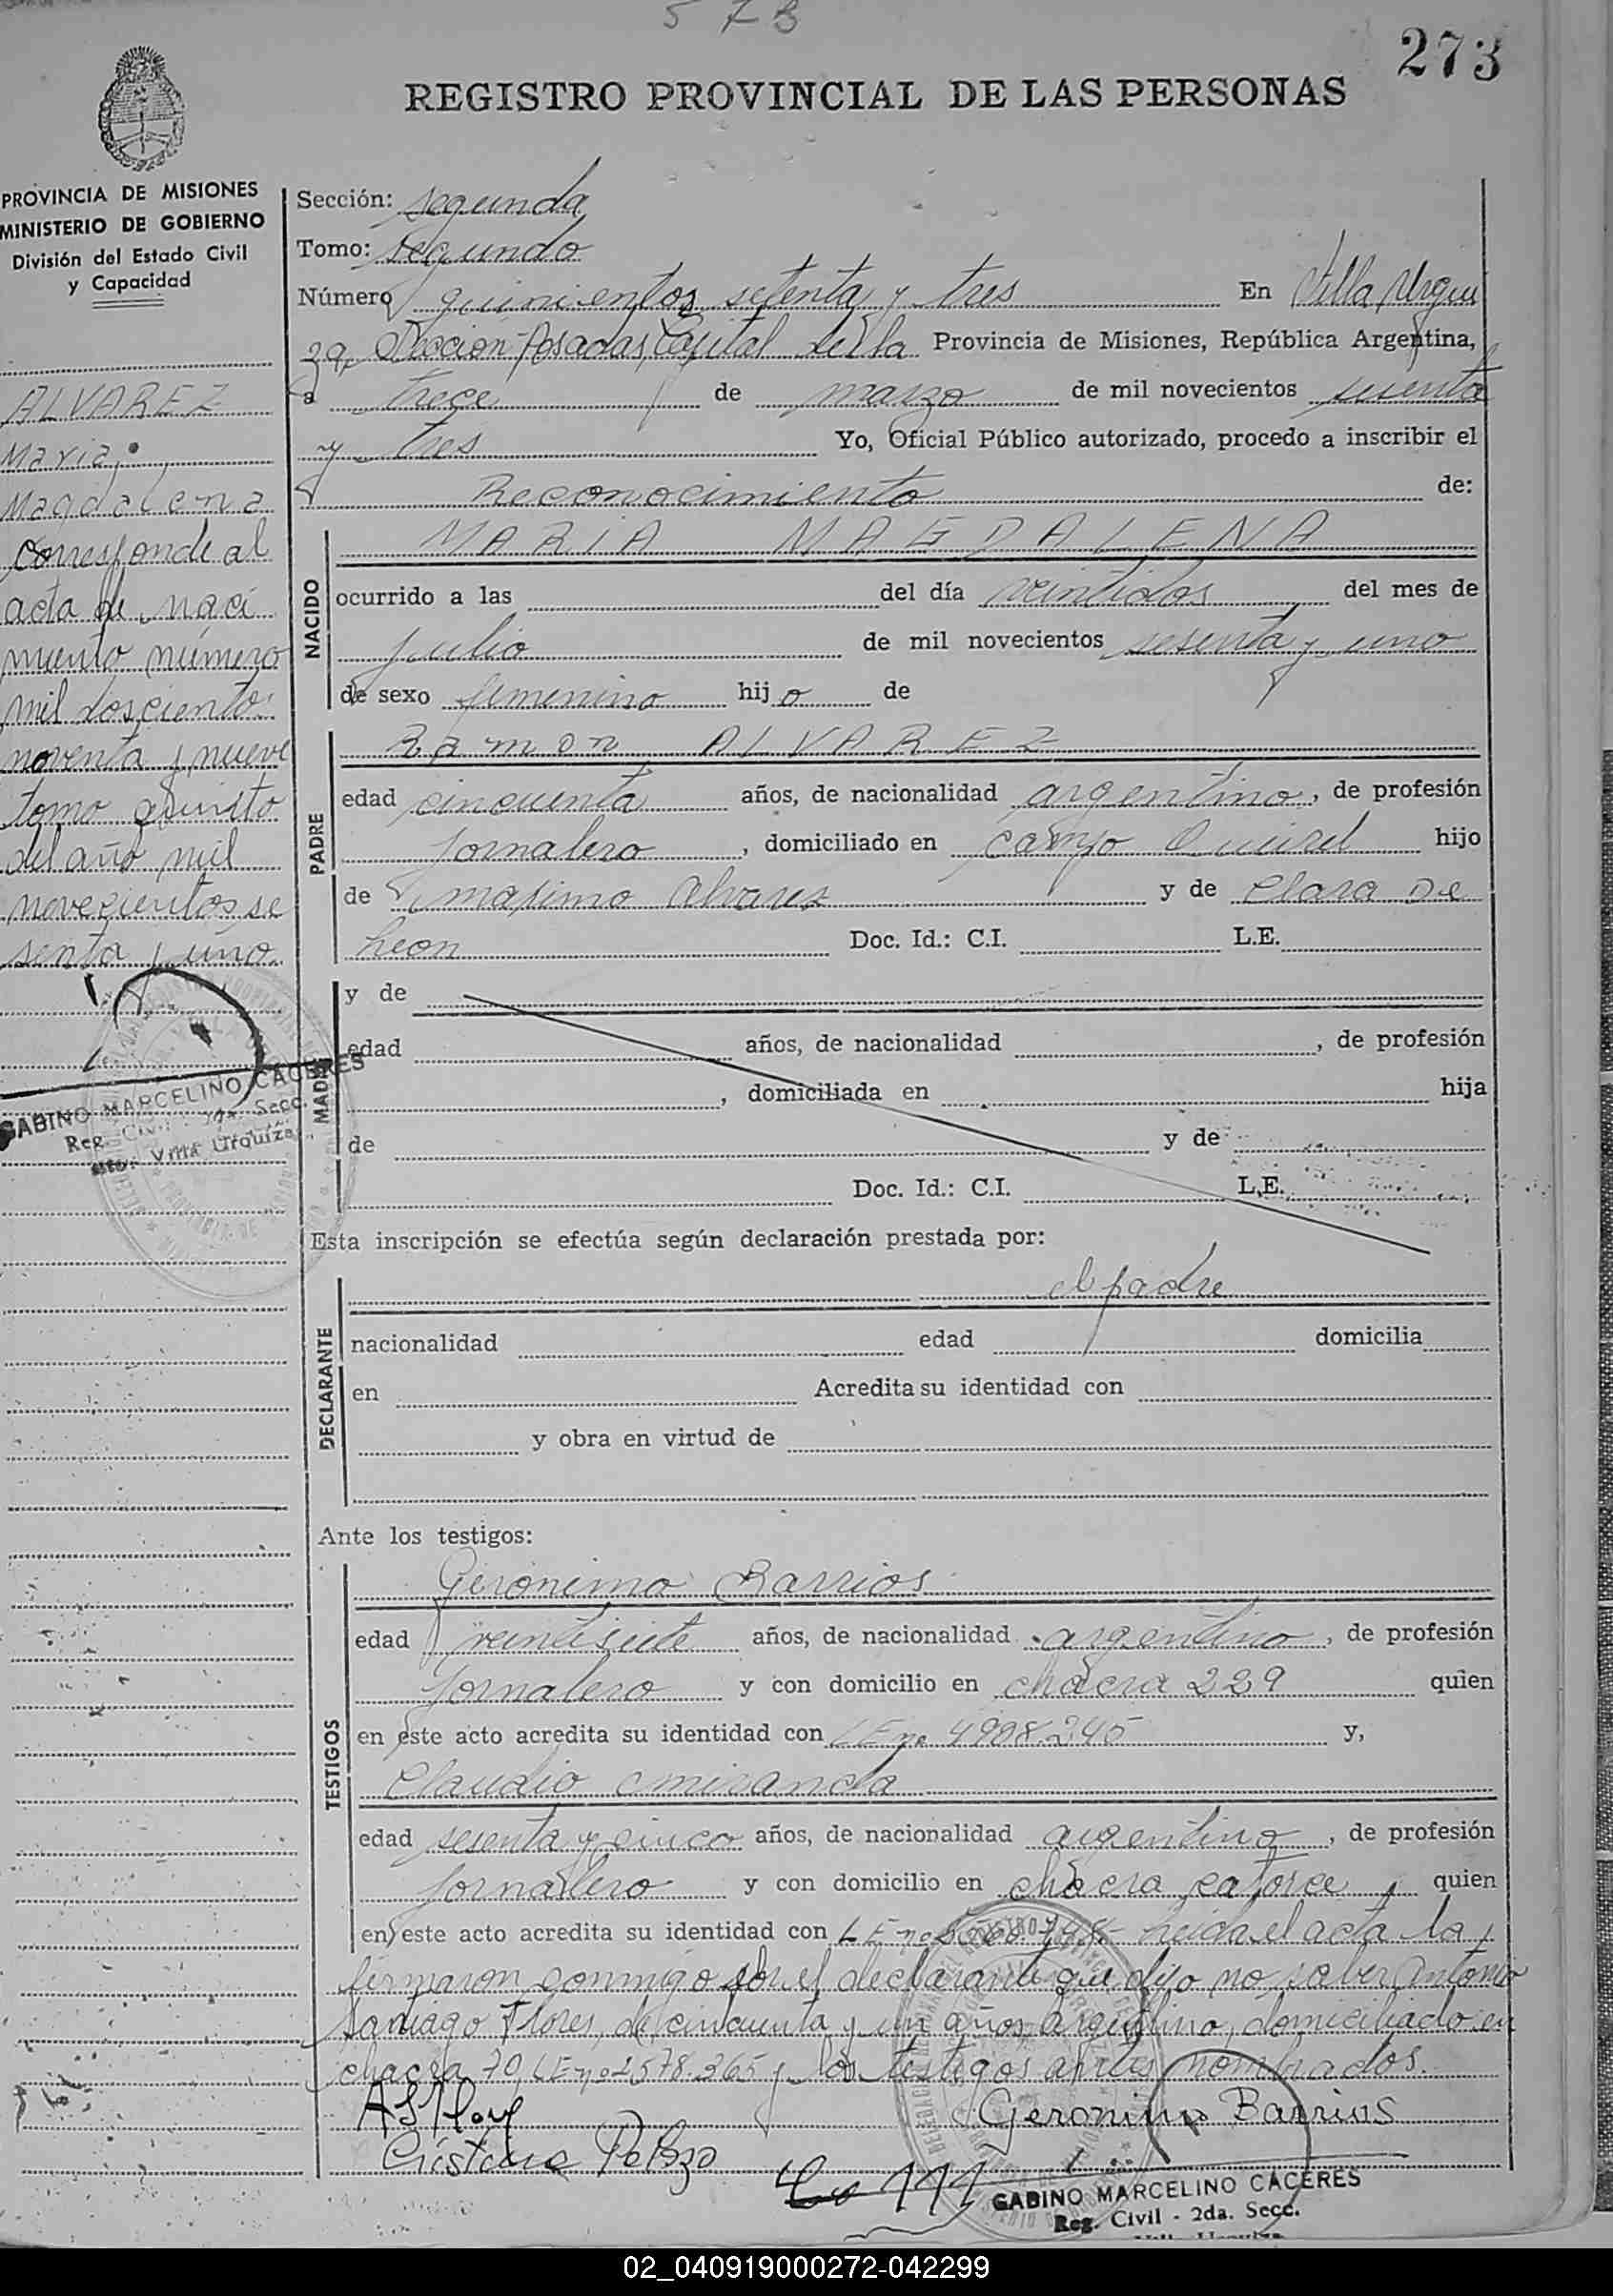 573
273
REGISTRO PROVINCIAL DE LAS PERSONAS
PROVINCIA DE MISIONES
MINISTERIO DE GOBIERNO
División del Estado Civil
y Capacidad
ALVAREZ
Maria
Magdalena
Corresponde al
acta de naci
miento número
mil doscientos
noventa y nueve
tomo quinto
del año mil
novecientos se
senta y uno
GABINO MARCELINO CACERES
Reg. Civil 2da. Secc.
Villa Urquiza
Sección: segunda
Tomo: Segundo
Número quinientos setenta y tres En Villa Urqui
za, Sección Posadas, Capital de la Provincia de Misiones, República Argentina,
a trece de marzo de mil novecientos sesenta
y tres Yo, Oficial Público autorizado, procedo a inscribir el
Reconocimiento de:
NACIDO
MARIA MAGDALENA
ocurrido a las del día veintidos del mes de
julio de mil novecientos sesenta y uno
de sexo femenino hijo de
PADRE
Ramon ALVAREZ
edad cincuenta años, de nacionalidad argentino, de profesión
jornalero, domiciliado en campo hijo
de maximo Alvarez y de Clara De
Leon Doc. Id.: C.I. L.E.
MADRE
y de
edad años, de nacionalidad , de profesión
, domiciliada en hija
de y de
Doc. Id.: C.I. L.E.
Esta inscripción se efectúa según declaración prestada por:
DECLARANTE
el padre
nacionalidad edad domicilia
en Acredita su identidad con
y obra en virtud de
Ante los testigos:
TESTIGOS
Geronimo Barrios
edad veintisiete años, de nacionalidad argentino, de profesión
jornalero y con domicilio en chacra 229 quien
en este acto acredita su identidad con LE no 4908.245 y,
Claudio miranda
edad sesenta y cinco años, de nacionalidad argentino, de profesión
jornalero y con domicilio en chacra catorce quien
en este acto acredita su identidad con LE no leida el acta la
firmaron conmigo por el declarante que dijo no saber Antonio
Santiago Flores, de cincuenta y un años, argentino, domiciliado en
chacra 70 LE no 2578.365 y los testigos antes nombrados.
Geronimo Barrios
GABINO MARCELINO CACERES
Reg. Civil - 2da. Secc.
02_040919000272-042299